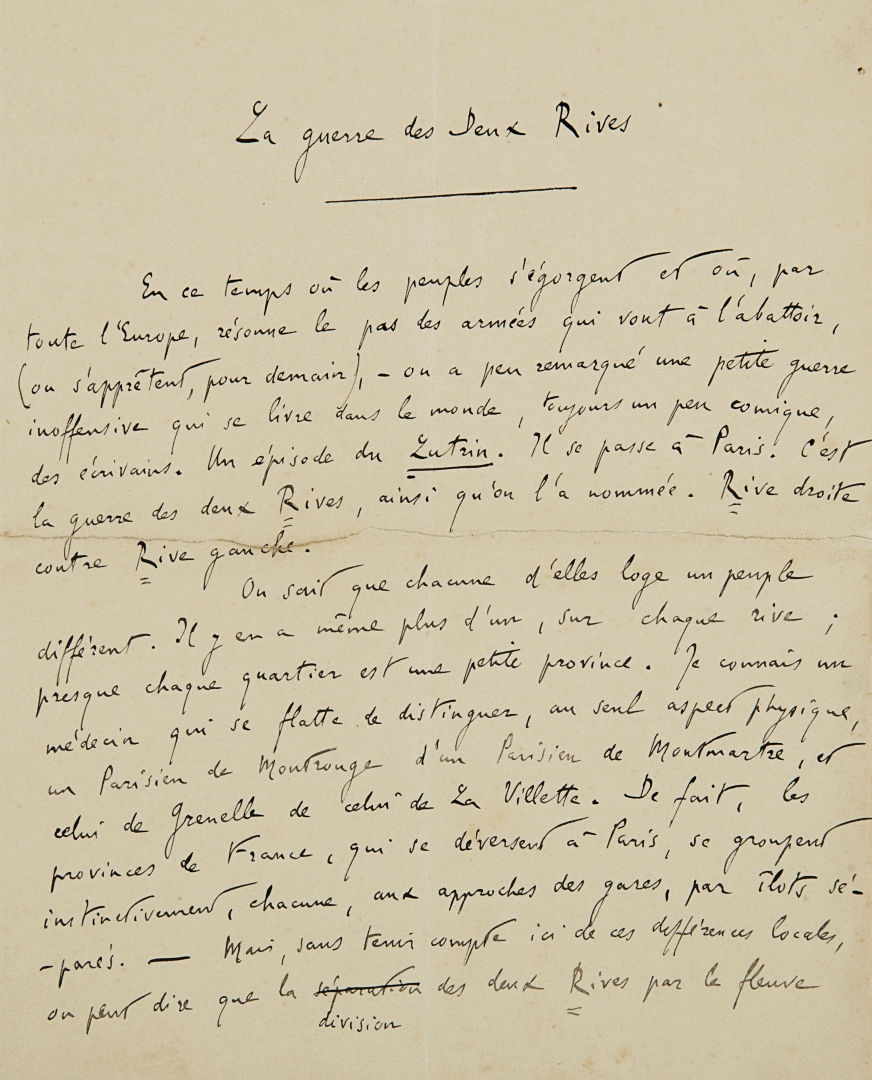 La guerre des Deux Rives
En ce temps où les peuples s'égorgent et où, par
toute l'Europe, résonne le pas des armées qui vont à l'abattoir,
(ou s'apprêtent, pour demain), – on a peu remarqué une petite guerre
inoffensive qui se livre dans le monde, toujours un peu comique,
des écrivains. Un épisode du Lutrin. Il se passe à Paris. C'est
la guerre des deux Rives, ainsi qu'on l'a nommée. Rive droite
contre Rive gauche.
On sait que chacune d'elles loge un peuple
différent. Il y en a même plus d'un, sur chaque rive ;
presque chaque quartier est une petite province. Je connais un
médecin qui se flatte de distinguer, au seul aspect physique,
un Parisien de Montrouge d'un Parisien de Montmartre, et
celui de Grenelle de celui de La Villette. De fait, les
provinces de France, qui se déversent à Paris, se groupent
instinctivement, chacune, aux approches des gares, par îlots sé-
-parés. — Mais, sans tenir compte ici de ces différences locales,
on peut dire que la séparation des deux Rives par le fleuve
division